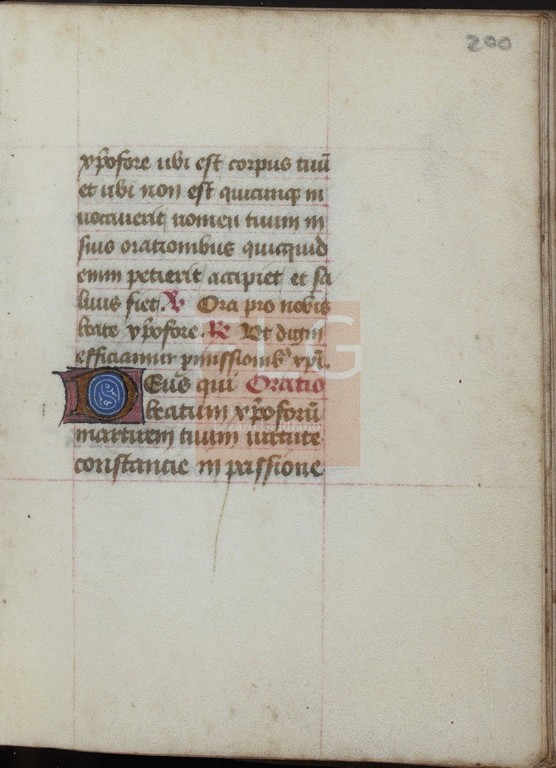 200
xpofore ubi est corpus tuū
et ubi non est quicunq in
uocauerit nomen tuum in
suis orationibus quicquid
enim petierit accipiet et sa
luus fiet. ℣ Ora pro nobis
beate xpofore. ℟ Ut digni
efficiamur pmissionib xpi.
Deus qui Oratio
beatum xpoforū
martirem tuum uirtute
constancie in passione